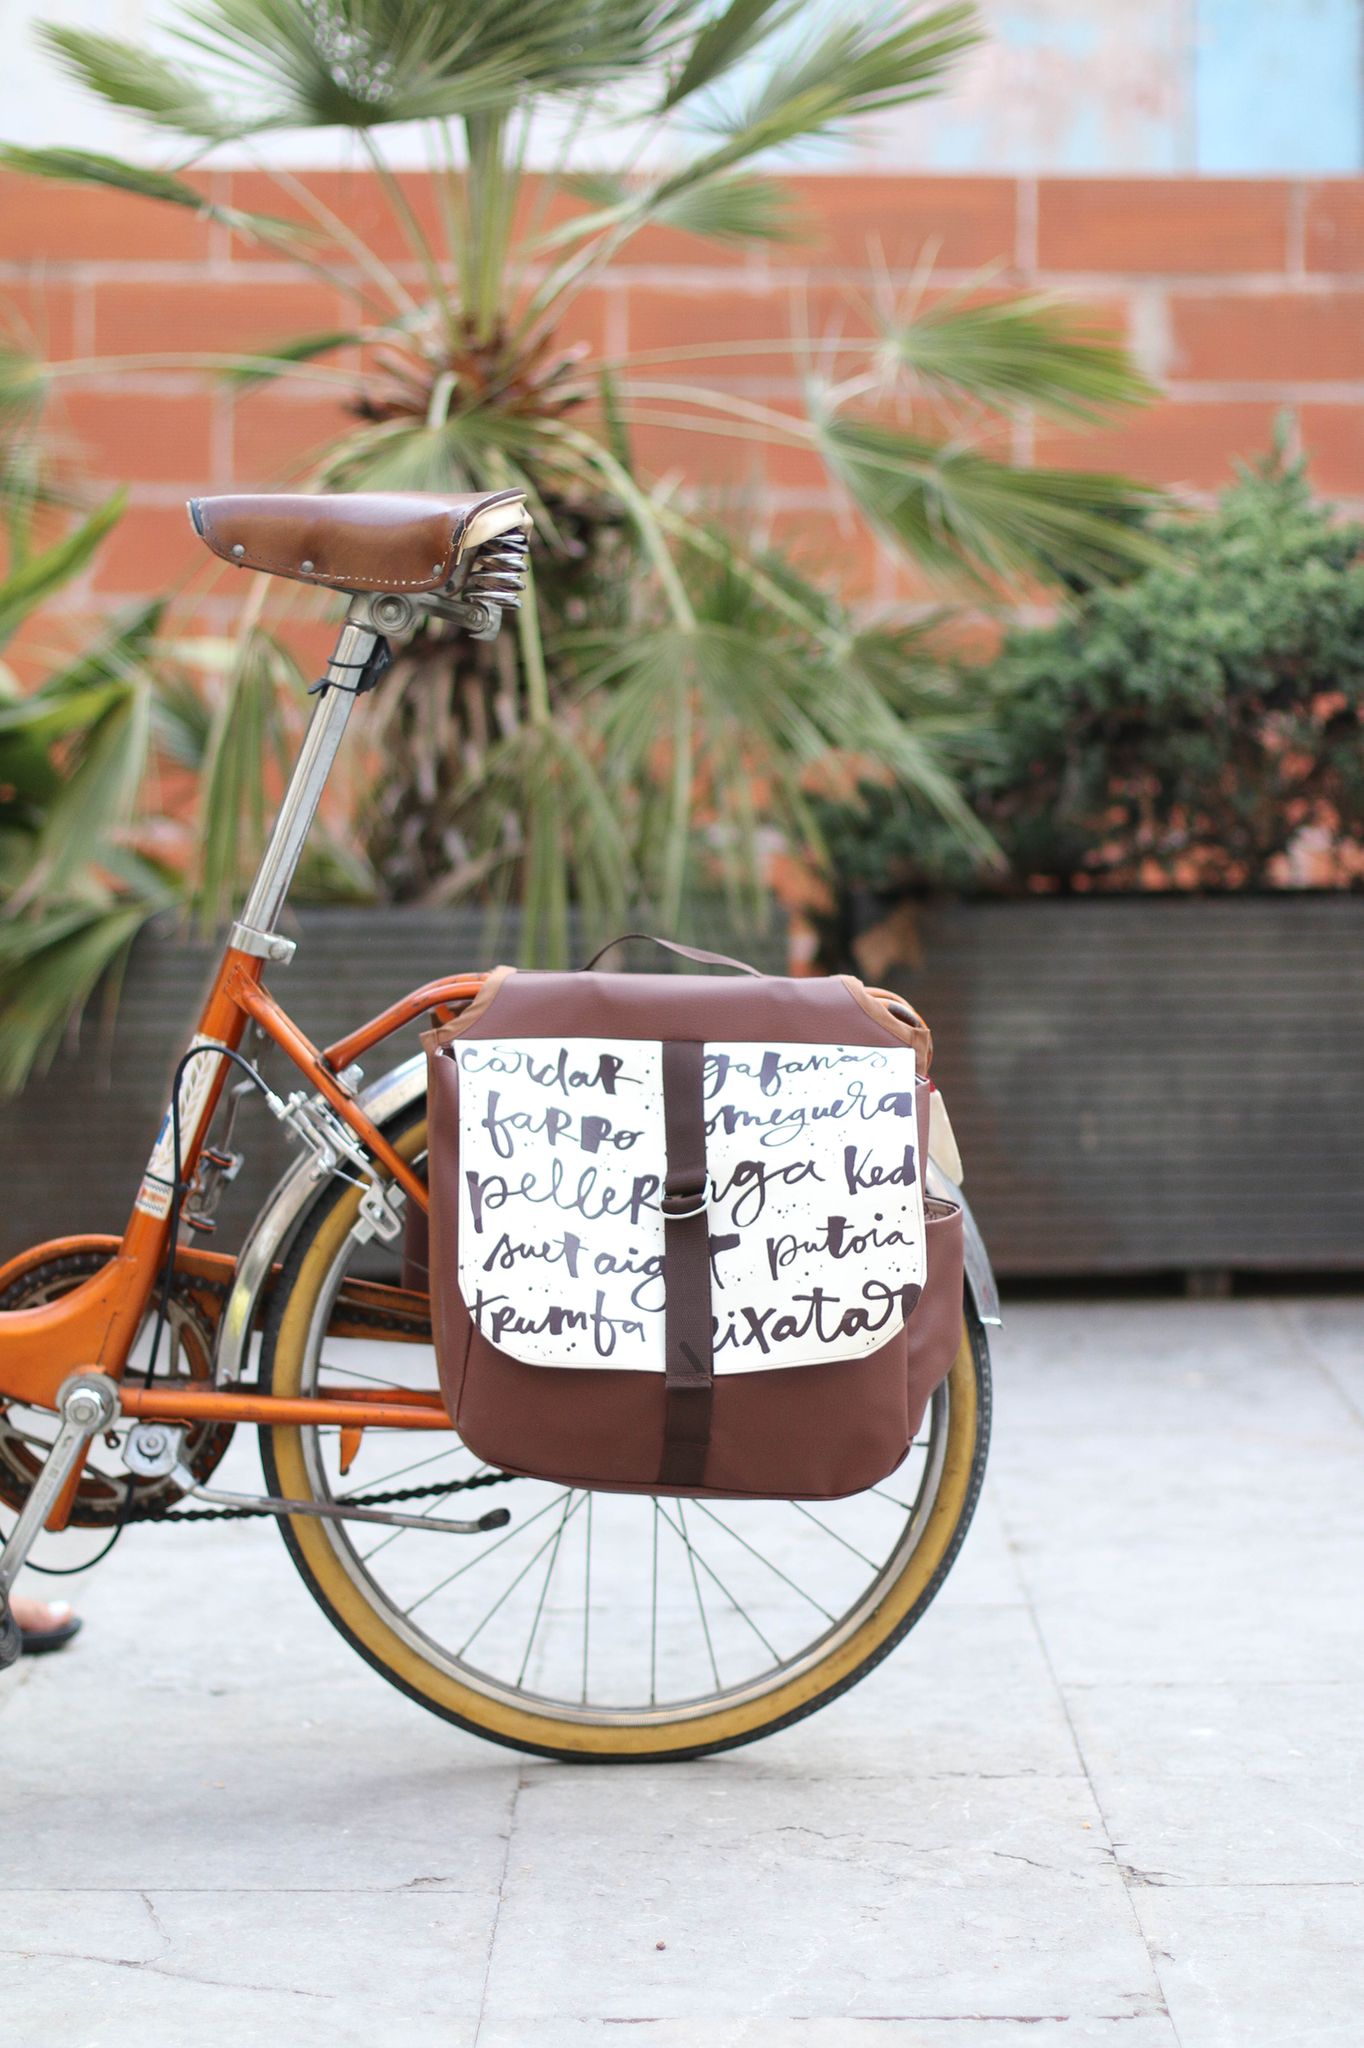 cardar gafanias
farro omeguera
pelleringa ked
suet aigot putoia
trumfa eixatar